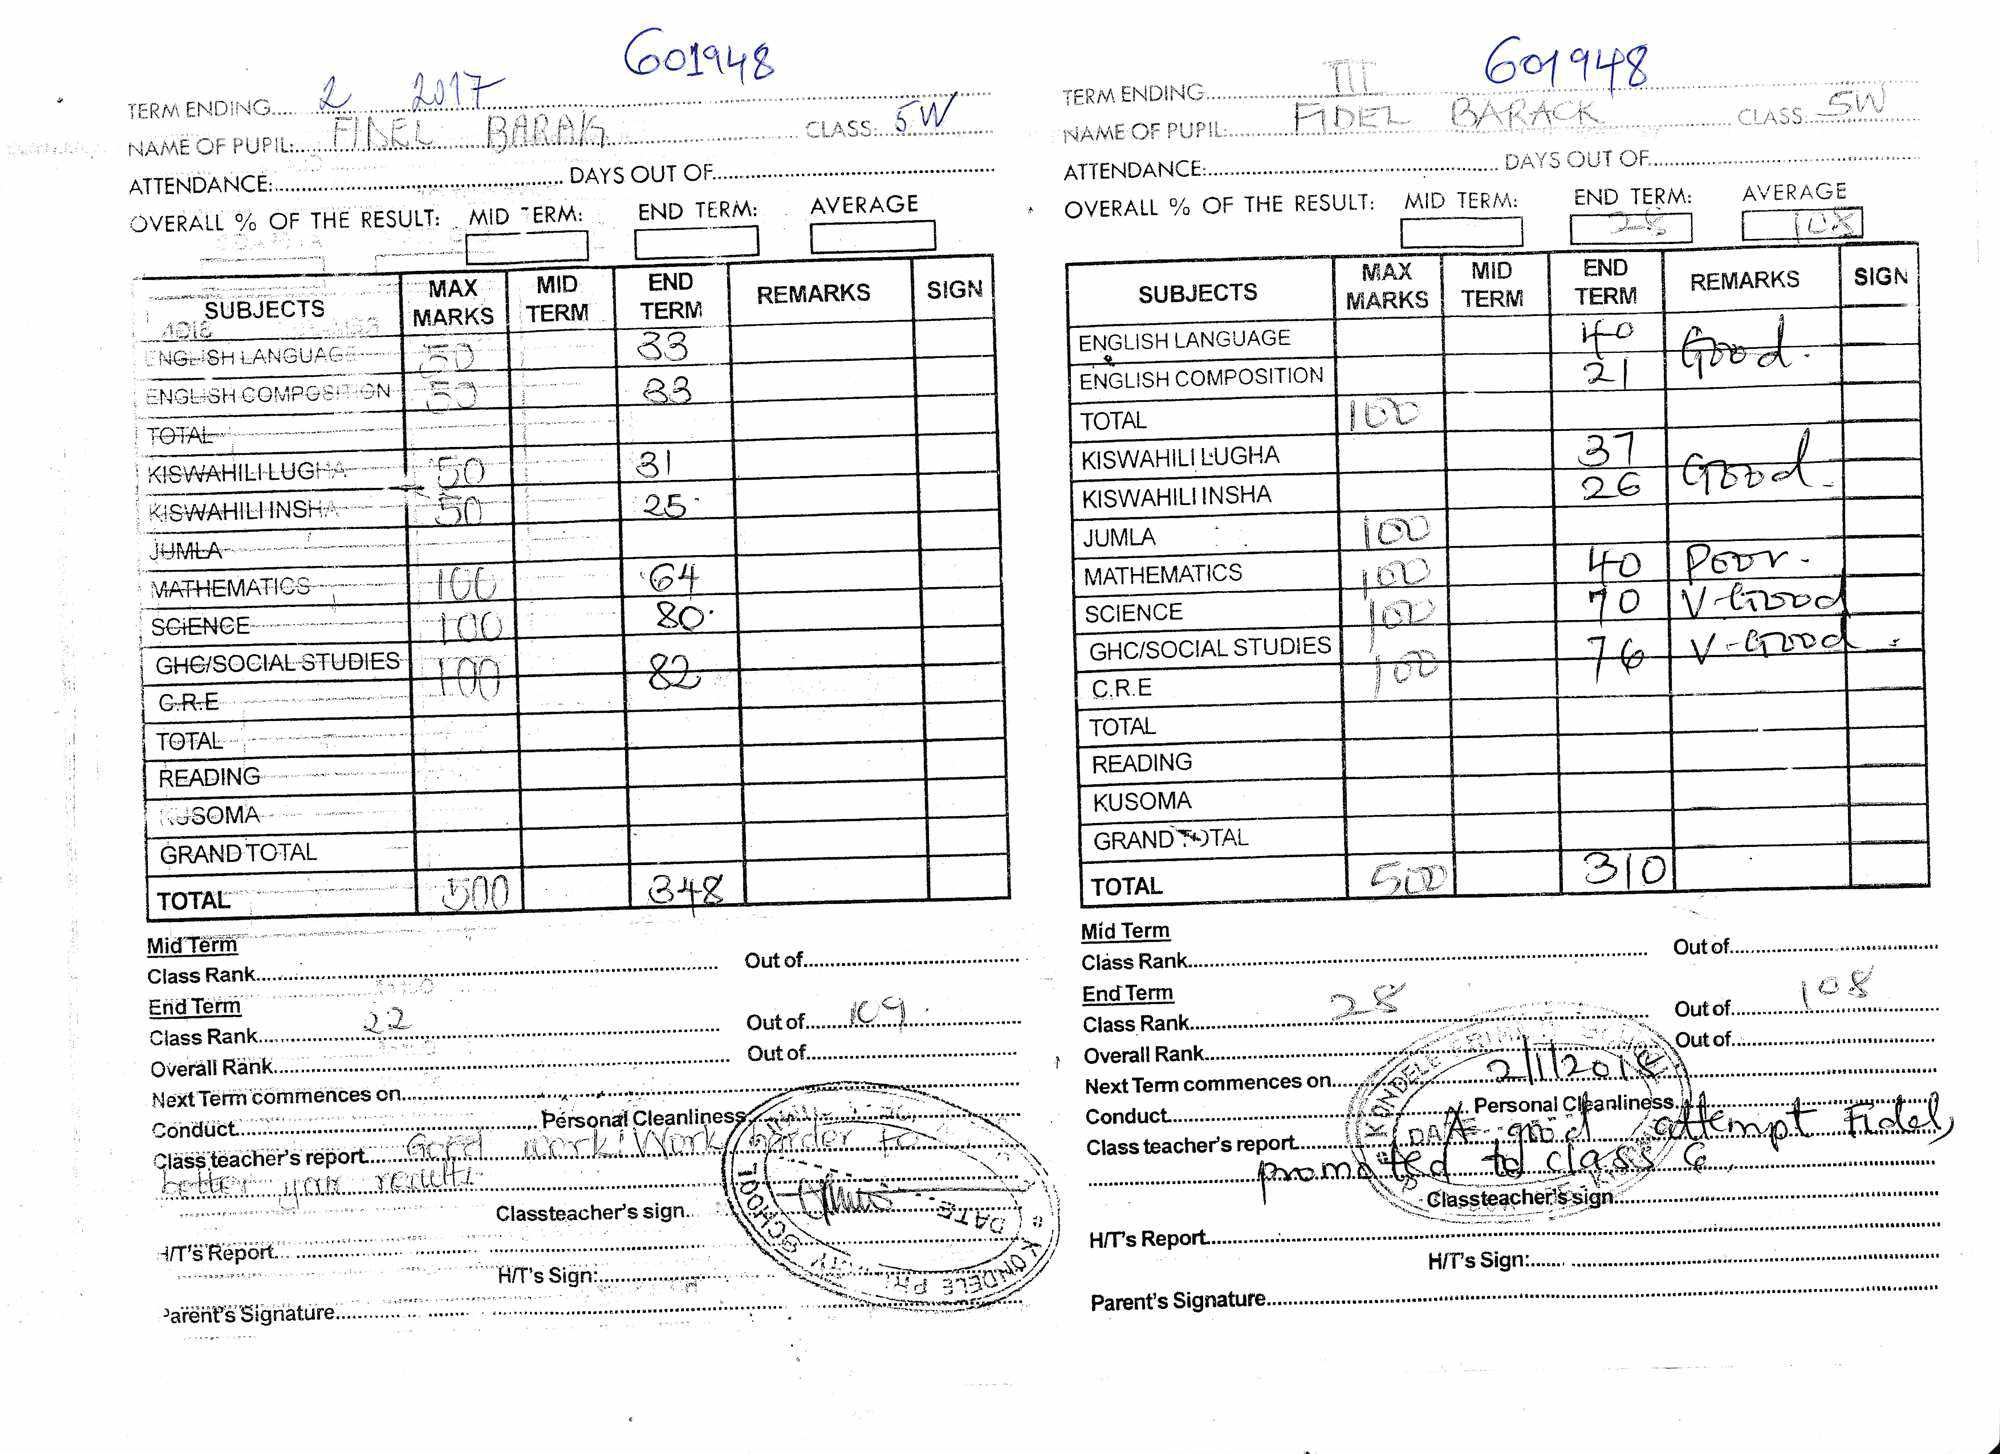 601948
TERM ENDING 2 2017
NAME OF PUPIL: FIDEL BARAK CLASS: 5W
ATTENDANCE: DAYS OUT OF
OVERALL % OF THE RESULT: MID TERM: END TERM: AVERAGE
SUBJECTS MAX MARKS MID TERM END TERM REMARKS SIGN
ENGLISH LANGUAGE 50 33
ENGLISH COMPOSITION 50 33
TOTAL
KISWAHILI LUGHA 50 31
KISWAHILI INSHA 50 25
JUMLA
MATHEMATICS 100 64
SCIENCE 100 80
GHC/SOCIAL STUDIES 100 82
C.R.E
TOTAL
READING
KUSOMA
GRAND TOTAL
TOTAL 500 348
Mid Term
Class Rank Out of
End Term
Class Rank 22 Out of 109
Overall Rank Out of
Next Term commences on
Conduct Personal Cleanliness
Class teacher's report Good work! Work harder to
better your results
Classteacher's sign.
H/T's Report
H/T's Sign:
Parent's Signature
KONDELE SCHOOL
DATE
601948
TERM ENDING III
NAME OF PUPIL: FIDEL BARACK CLASS 5W
ATTENDANCE: DAYS OUT OF
OVERALL % OF THE RESULT: MID TERM: END TERM: 28 AVERAGE 108
SUBJECTS MAX MARKS MID TERM END TERM REMARKS SIGN
ENGLISH LANGUAGE 40 Good.
&
ENGLISH COMPOSITION 21
TOTAL 100
KISWAHILI LUGHA 37 Good.
KISWAHILI INSHA 26
JUMLA 100
MATHEMATICS 100 40 Poor.
SCIENCE 100 70 V-Good
GHC/SOCIAL STUDIES 100 76 V-Good.
C.R.E
TOTAL
READING
KUSOMA
GRAND TOTAL
TOTAL 500 310
Mid Term
Class Rank Out of
End Term
Class Rank 28 Out of 108
Overall Rank Out of
Next Term commences on 2/1/2018
Conduct Personal Cleanliness
Class teacher's report A good attempt Fidel,
promoted to class 6.
Classteacher's sign
H/T's Report
H/T's Sign:
Parent's Signature
KONDELE
DATE